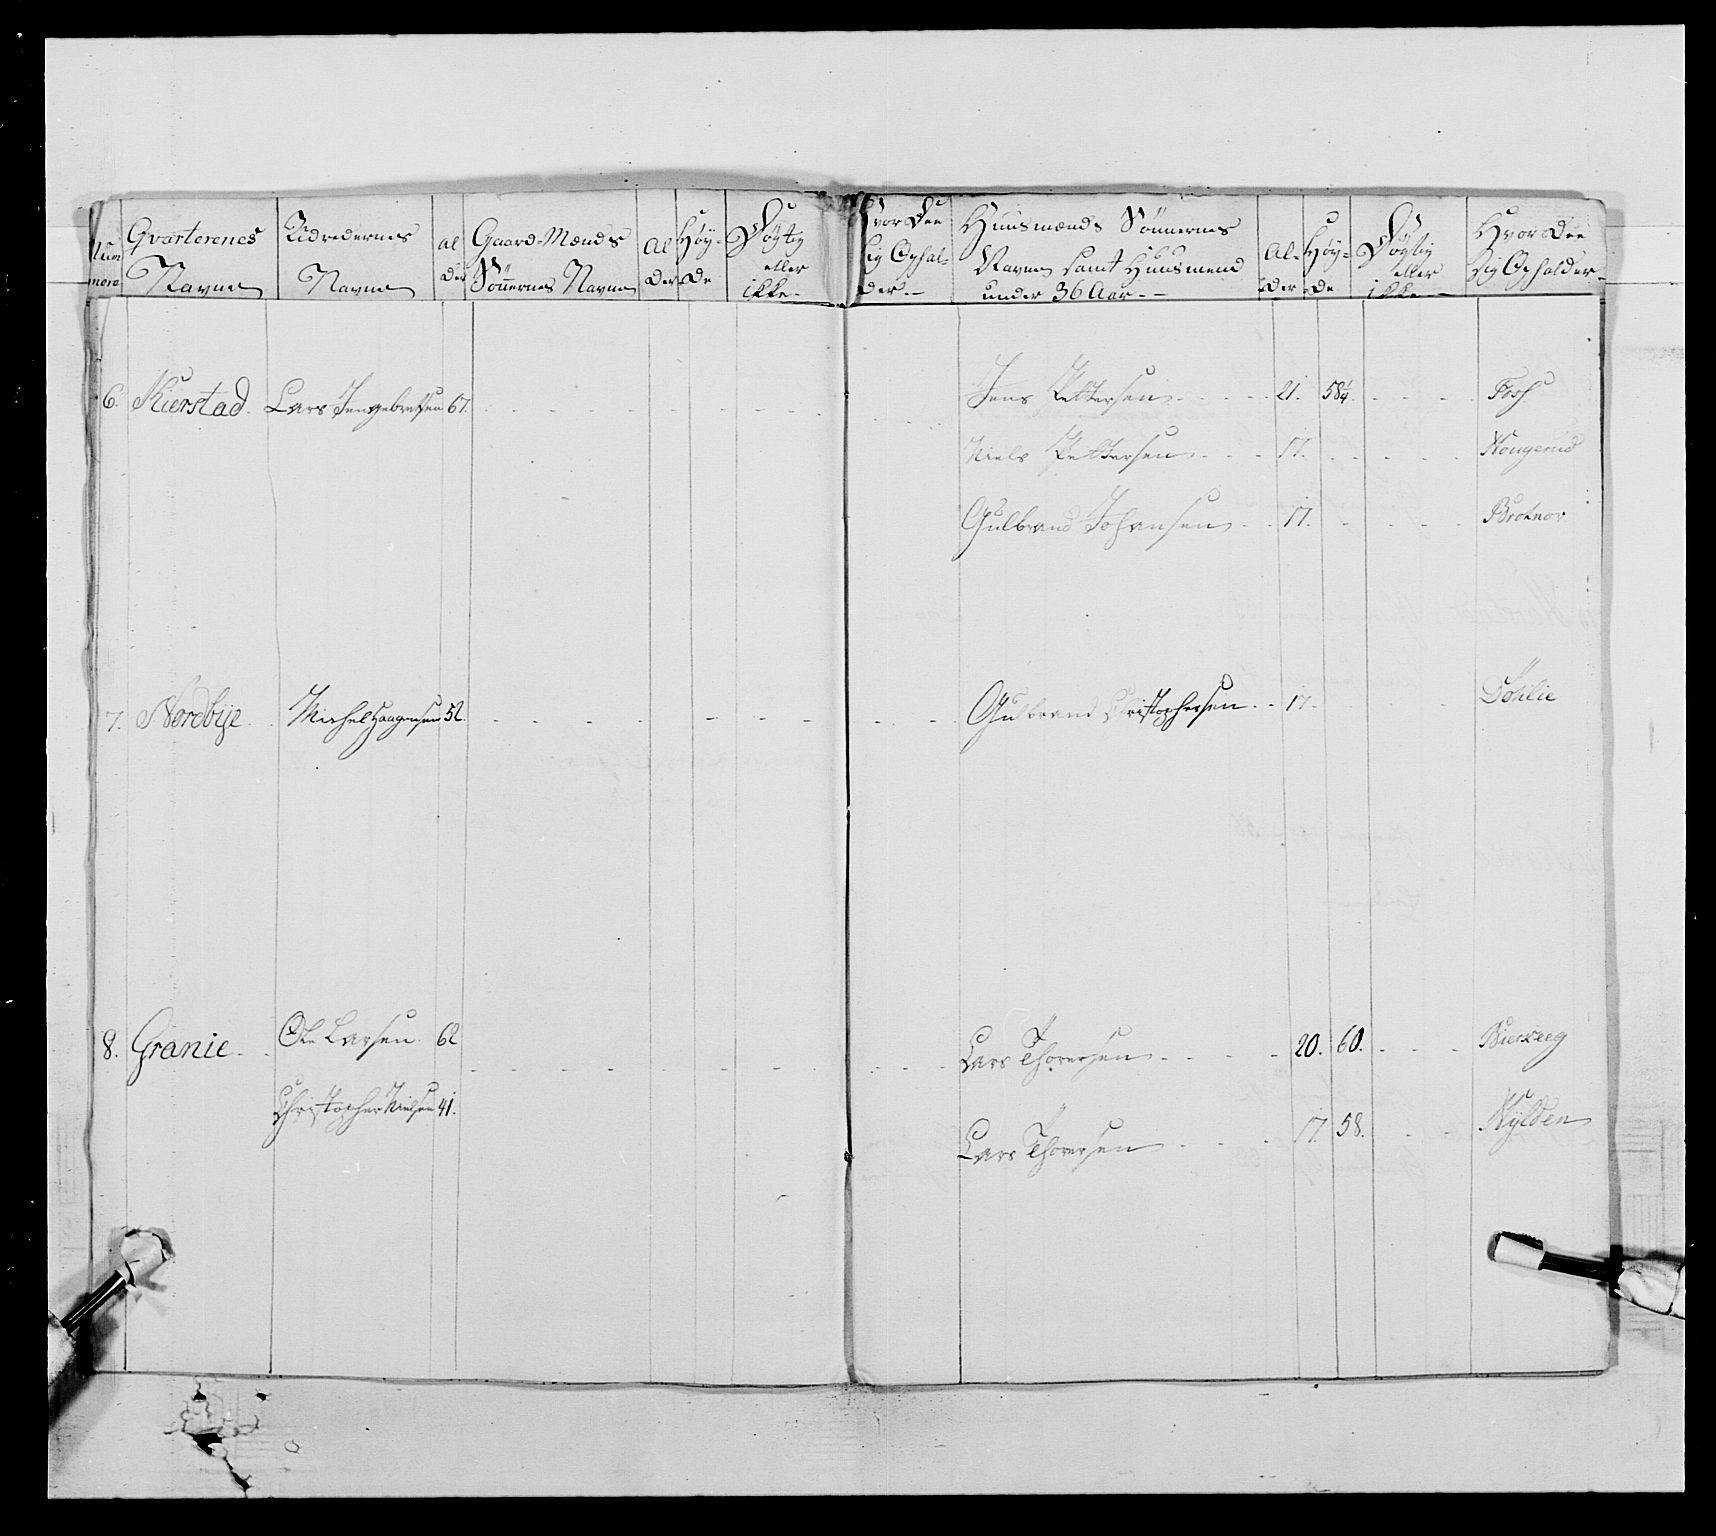 Num mero
Gvarterenes Navne
Udredernes Navne
al der
Gaard-Mænds Sönnernes Navne
Al der
Höy- de
Dygtig eller ikke.
Hvor Dee Sig Ophal- der.
Huusmænds Sönnernes Navne samt Huusmænd under 36 Aar.
Al- der
Höy- de
Dygtig eller ikke
Hvor Dee Sig Opholder
6. Kierstad Lars Jngebretsen 67. Jens Pettersen 21. 58¼ Fosh
Niels Pettersen 17. Hougerud
Gulbrand Johansen 17. Brotnor
7. Nordbye Michel Haagensen 52. Gulbrand Christophersen 17. Döhlie
8. Granie Ole Larsen 62 Lars Thoresen 20. 60. Bierkeeg
Christopher Nielsen 41. Lars Thoresen 17. 58. Kylden